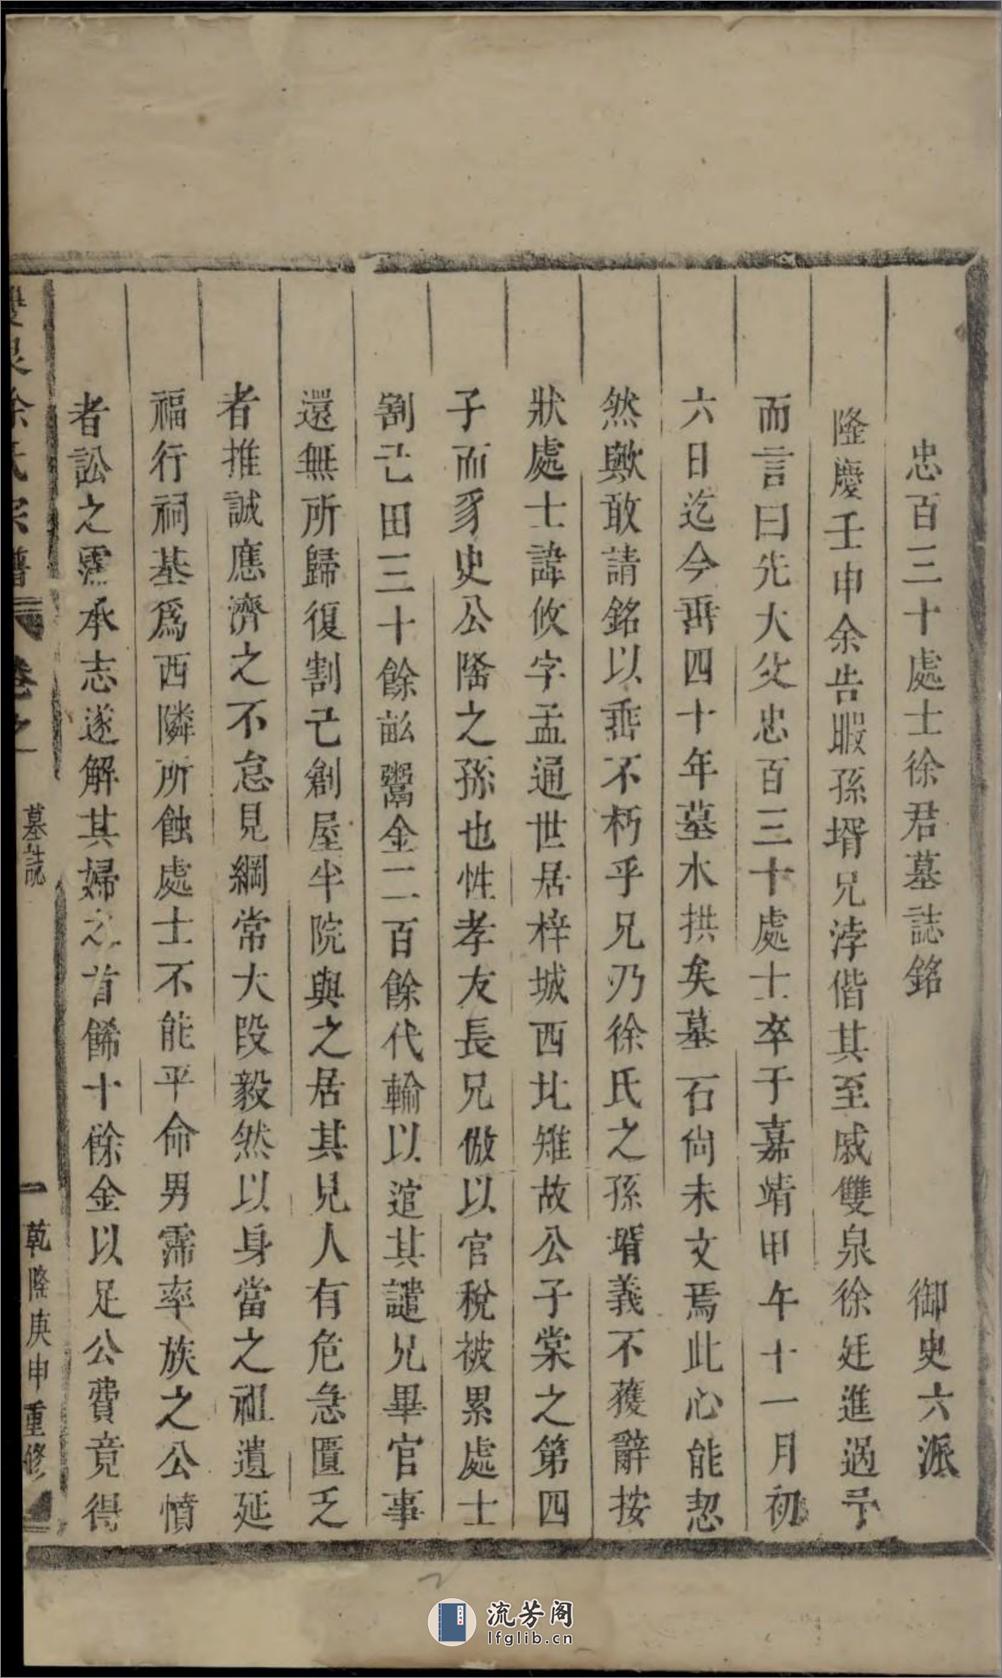 忠百三十處士徐君墓誌銘 御史六派
隆慶壬申余告暇孫壻兄浡偕其至戚雙泉徐廷進過予
而言曰先大父忠百三十處士卒于嘉靖甲午十一月初
六日迄今垂四十年墓木拱矣墓石尙未文焉此心能恝
然歟敢請銘以垂不朽乎兄乃徐氏之孫壻義不獲辭按
狀處士諱攸字孟通世居梓城西北雉故公子棠之第四
子而豸史公隆之孫也性孝友長兄倣以官稅被累處士
割己田三十餘畝鬻金二百餘代輸以逭其譴兄畢官事
還無所歸復割己創屋半院與之居其見人有危急匱乏
者推誠應濟之不怠見綱常大段毅然以身當之祖遺延
福行祠基爲西隣所蝕處士不能平命男霈率族之公憤
者訟之霈承志遂解其婦之首餙十餘金以足公費竟得
雙泉徐氏宗譜 卷之 墓誌 一 乾隆庚申重修
流芳阁
lfglib.cn